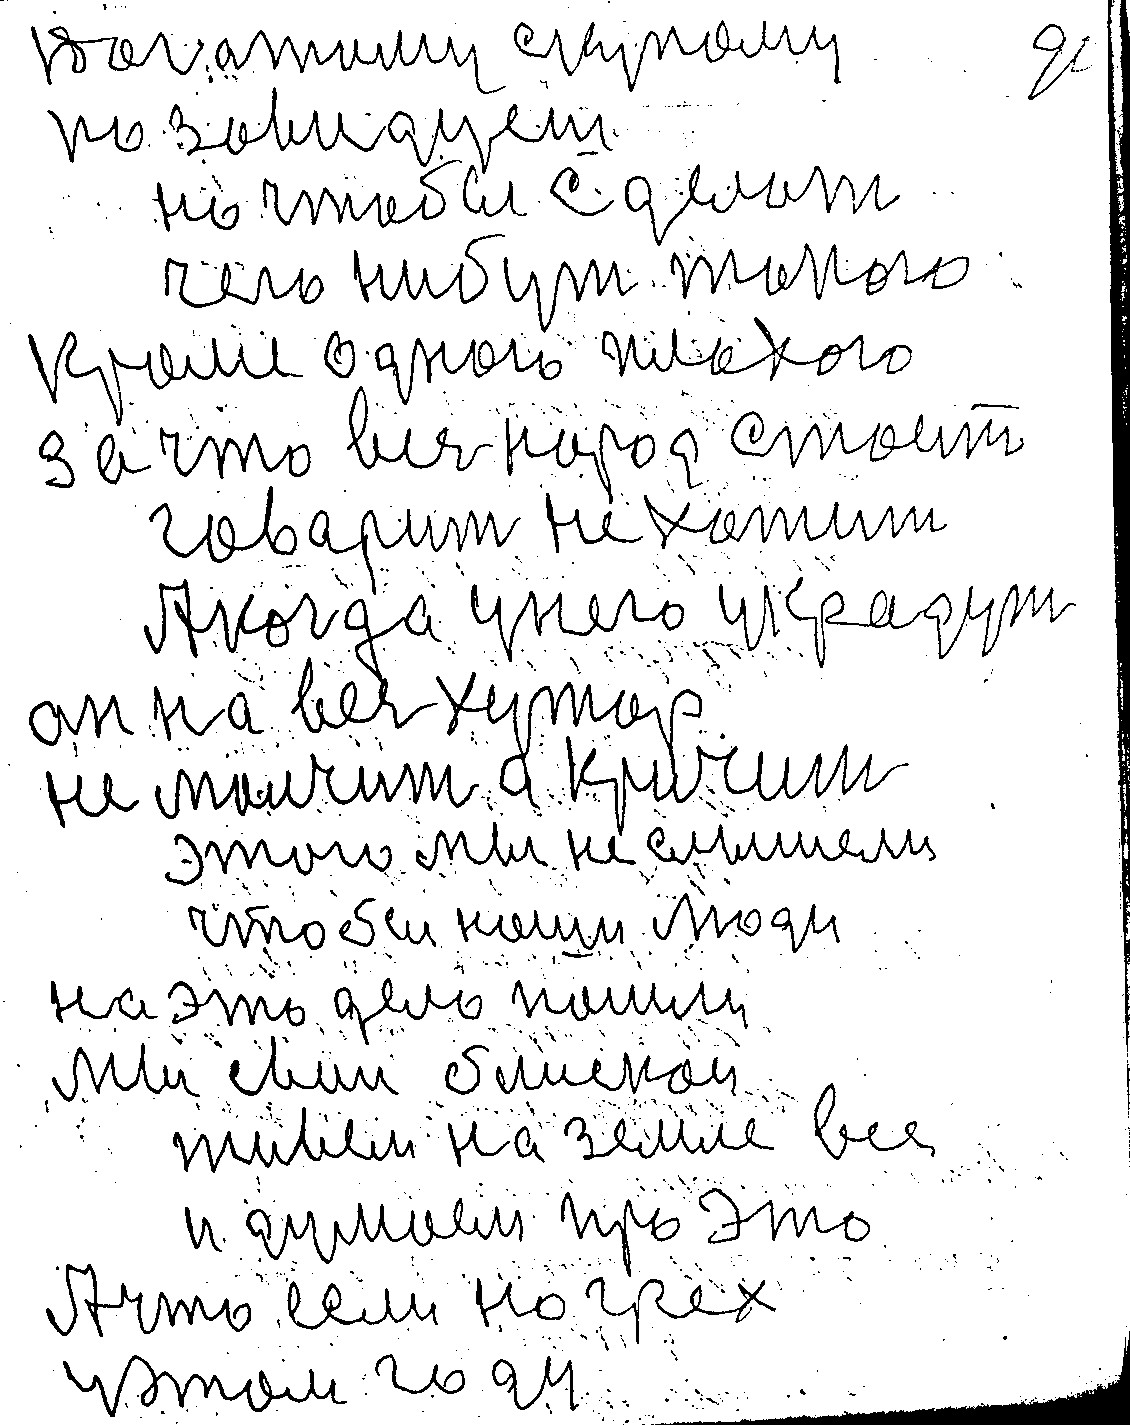 Богатому скупому
позавидует
но чтобы сделат
чего нибут токого
Кроме одного плохого
за что вея народ стоит
говарит не хотит
А когда у него украдут
он на вея хутор
не молчит а кричит
этого мы не слышели
чтобы наши люди
на это дело пошли
Мы свои близкои
живем на земле все
и думаем про это
А что если на грех
у этом году